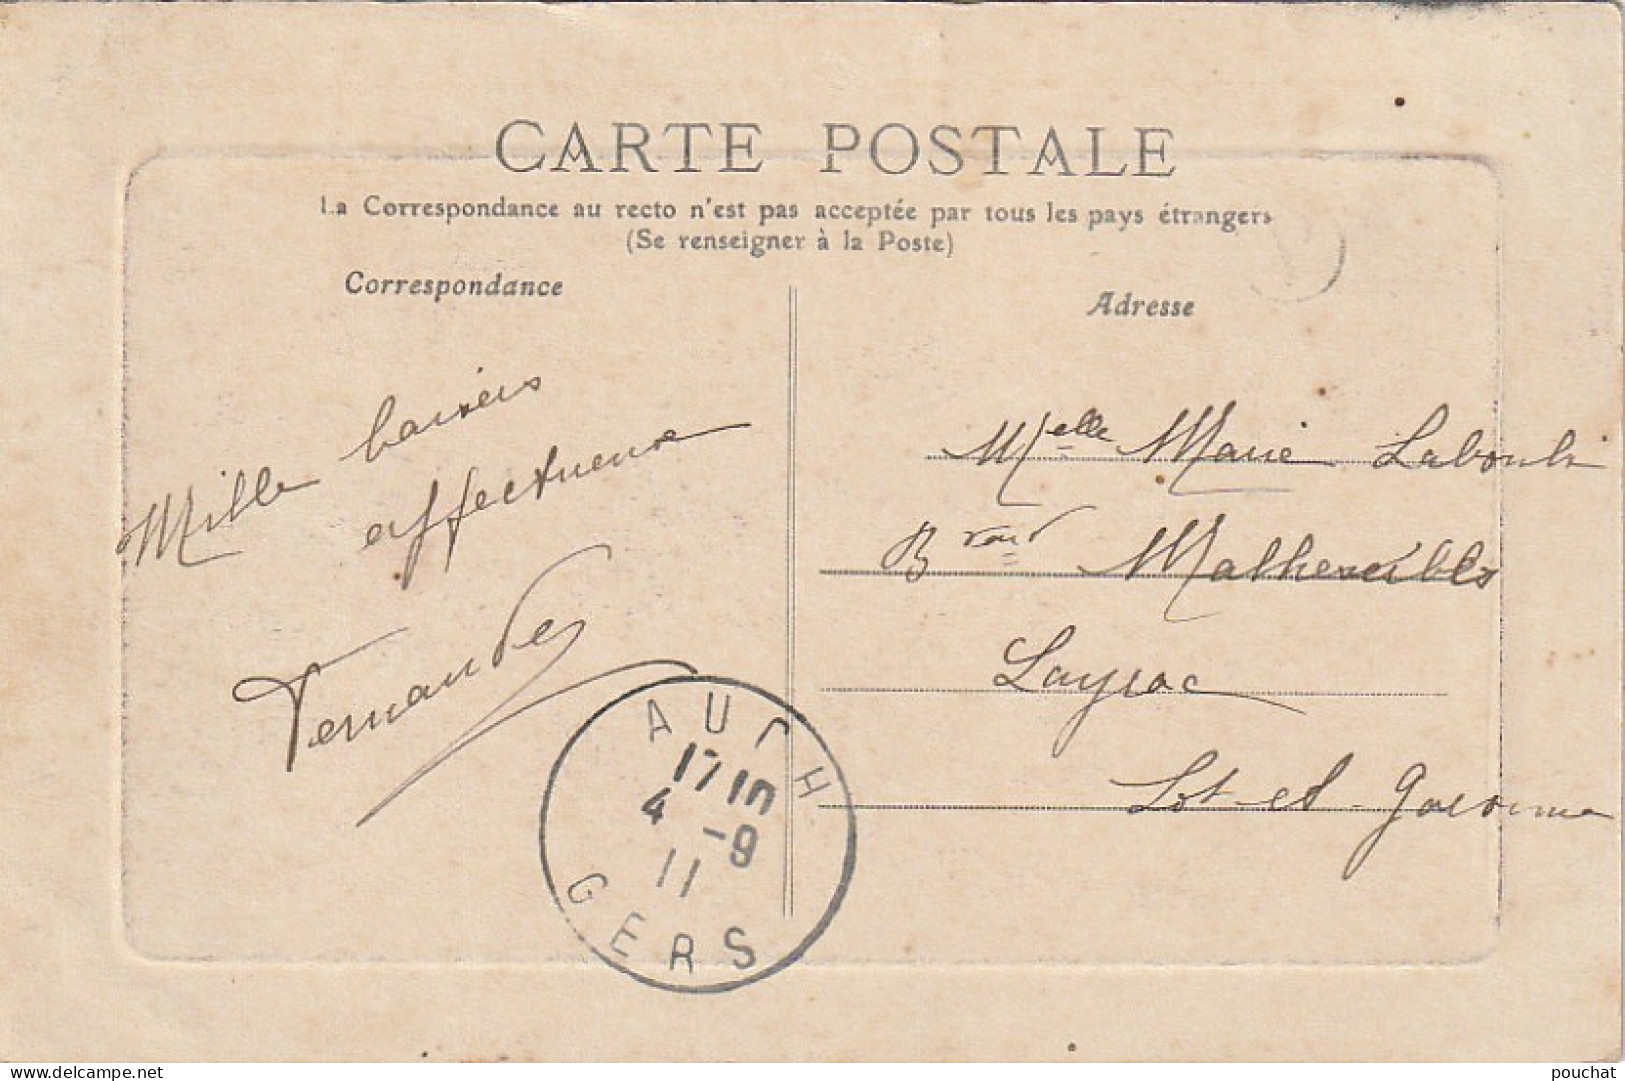 CARTE POSTALE
La Correspondance au recto n'est pas acceptée par tous les pays étrangers
(Se renseigner à la Poste)
Correspondance
Mille baisers
affectueux
Fernande
Adresse
Melle Marie
Layrac
Lot-et-Garonne
AUCH
17 10
4 -9
11
GERS
D
www.delcampe.net
pouchat